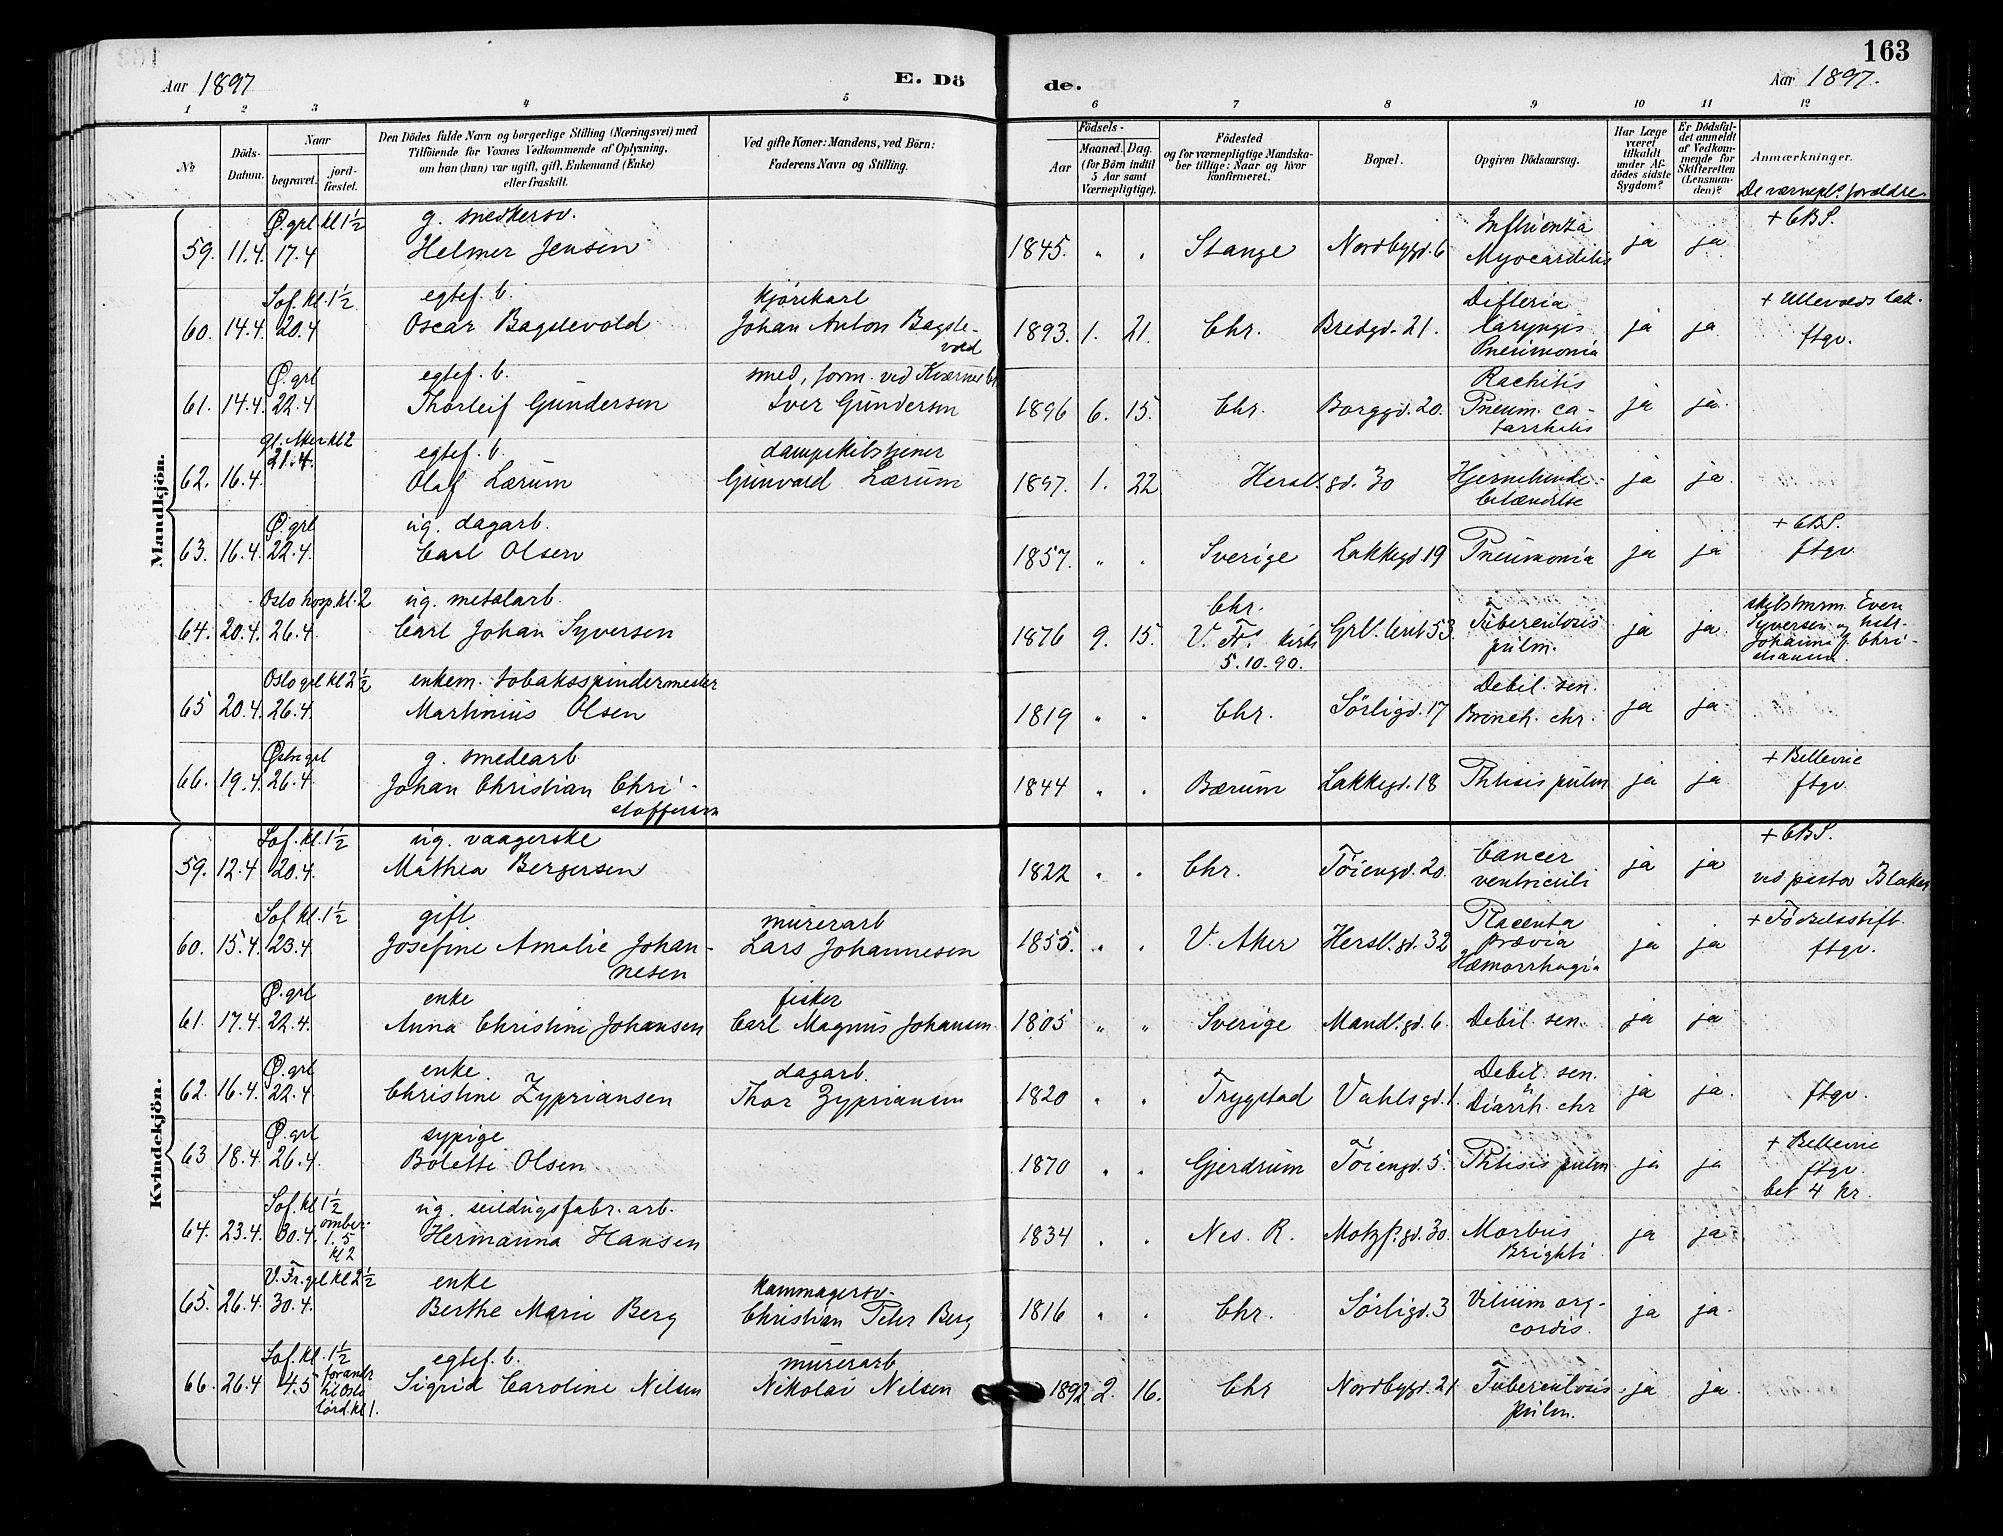 163
Aar 1897 E. Dö de. Aar 1897.
1 2 3 4 5 6 7 8 9 10 11 12
No
Döds-Datum.
Naar
begravet.
jord-fæstet.
Den Dödes fulde Navn og borgerlige Stilling (Næringsvei) med
Tilföiende for Voxnes Vedkommende af Oplysning,
om han (hun) var ugift, gift, Enkemand (Enke)
eller fraskilt.
Ved gifte Koner: Mandens, ved Börn:
Faderens Navn og Stilling.
Födsels-
Aar
Maaned. Dag.
(for Börn indtil
5 Aar samt
Værnepligtige).
Födested
og for værnepligtige Mandska-
ber tillige: Naar og hvor
konfirmeret.
Bopæl.
Opgiven Dödsaarsag.
Har Læge
været
tilkaldt
under Af-
dödes sidste
Sygdom?
Er Dödsfal-
det anmeldt
af Vedkom-
mende for
Skifteretten
(Lensman-
den)?
Anmærkninger.
De værnepl. forældre
Mandkjön.
Ø. grl kl 1½ g. snedkersv. Influenza + CBS.
59. 11.4. 17.4 Helmer Jensen 1845. " " Stange Nordbygd. 6 Myocarditis ja ja
Sof. kl. 1½ egtef. b. kjørekarl Difteria + Ullevolds lak.
60. 14.4. 20.4 Oscar Bagstevold Johan Anton Bagste- 1893. 1. 21. Chr. Bredgd. 21. laryngis ja ja ftgv.
vold Pneumonia
Ø. grl egtef. b. smed, form. ved Kværner br Rachitis
61. 14.4. 22.4. Thorleif Gundersen Iver Gundersen 1896 6. 15. Chr. Borggd. 20. Pneum. ca- ja ja.
tarrhalis
gl. Aker kl 2
21.4. egtef. b. dampskibstjener
62. 16.4. Olaf Lærum Gunvald Lærum 1897. 1. 22 Hersl. gd. 30 Hjernehinde- ja ja.
betændelse
Ø. grl ug. dagarb. + CBS.
63. 16.4. 22.4. Carl Olsen 1857. " " Sverige Lakkegd. 19 Pneumonia ja ja ftgv.
Oslo hosp. kl. 2 ug. metalarb. Chr. skibstmrm. Even
64. 20.4. 26.4. Carl Johan Syversen 1876 9. 15. V. Frs kirke Grl. 53. Tuberculosis ja ja. Syversen og
5.10.90. pulm. Johanne f. Chri-
stiansen.
Oslo grl kl 2½ enkem. tobaksspindermester Debil. sen.
65 20.4. 26.4. Martinius Olsen 1819 " " Chr. Sørligd. 17 Bronch. chr. ja ja.
Østre grl g. smedearb + Bellevue
66. 19.4. 26.4. Johan Christian Chri- 1844 " " Bærum Lakkegd. 18 Phtisis pulm ja ja ftgv.
stoffersen
Kvindekjön.
Sof. kl. 1½ ug. vaagerske + CBS.
59. 12.4 20.4. Mathea Bergersen 1822 " " Chr. Tøiengd. 20. Cancer ja ja
ventriculi ved pastor Blaker
Sof kl. 1½ gift. murerarb Placenta + Fødselsstift.
60. 15.4. 23.4. Josefine Amalie Johan- Lars Johannesen 1855. " " V. Aker Hersl. gd. 32 prævia ja ja ftgv.
nesen Hæmorrhagia
Ø. grl enke fisker
61. 17.4. 22.4. Anna Christine Johansen Carl Magnus Johansen 1805 " " Sverige Mandl. gd. 6. Debil. sen. ja ja
Ø. grl enke dagarb. Debil. sen.
62. 16.4. 22.4. Christine Zypriansen Thor Zypriansen 1820 " " Trygstad Vahls gd. 1. & Diarrh. chr ja ja. ftgv.
Ø. grl sypige + Bellevue
63 18.4. 26.4. Bolette Olsen 1870 " " Gjerdrum Tøiengd. 5. Phtisis pulm ja ja ftgv.
bet 4 kr.
Sof. kl 1½ ug. seildugsfabr. arb.
64. 23.4. 30.4. omber. Hermanna Hansen 1834 " " Nes. R. Motzf. gd. 30. Morbus ja ja.
1.5 Brighti.
kl 2
V. Fr. grl kl 2½ enke kammagersv.
65. 26.4. 30.4. Berthe Marie Berg Christian Peter Berg 1816 " " Chr. Sørligd. 3 Vitium org. ja ja.
cordis.
Sof. kl. 1½ egtef. b. murerarb
66. 26.4 4.5 forandr Sigrid Caroline Nilsen Nikolai Nilsen 1892 2. 16. Chr Nordbygd. 21 Tuberculosis ja ja.
til Oslo pulm.
lörd. kl 1.